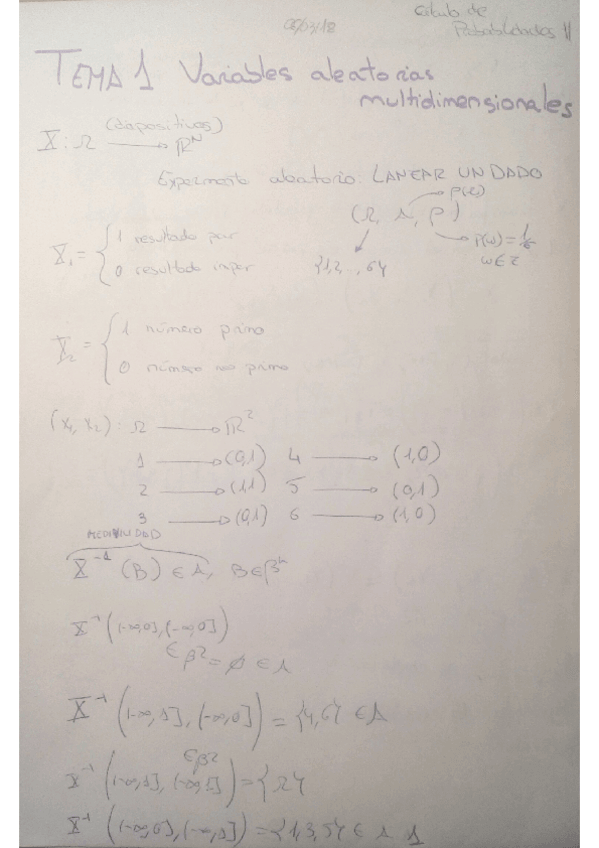 Cálculo de
Probabilidades II
TEMA 1 Variables aleatorias
multidimensionales
(diapositivas)
X : Ω → ℝᴺ
Experimento aleatorio: LANZAR UN DADO
P(Ω)
(Ω, A, P)
X₁ = { 1 resultado par
0 resultado impar
{1,2...,6}
P(ω) = 1/6
X₂ = { 1 número primo
0 número no primo
(x₁, x₂) : Ω → ℝ²
1 → (0,1) 4 → (1,0)
2 → (1,1) 5 → (0,1)
3 → (0,1) 6 → (1,0)
MEDIBILIDAD
X⁻¹ (B) ∈ A, B ∈ βᴺ
X⁻¹ ((-∞,0], (-∞,0])
∈ β² = ∅ ∈ A
X⁻¹ ((-∞,1], (-∞,0]) = {4,6} ∈ A
∈ β²
X⁻¹ ((-∞,1], (-∞,1]) = {Ω}
X⁻¹ ((-∞,0], (-∞,1]) = {1,3,5} ∈ A 1